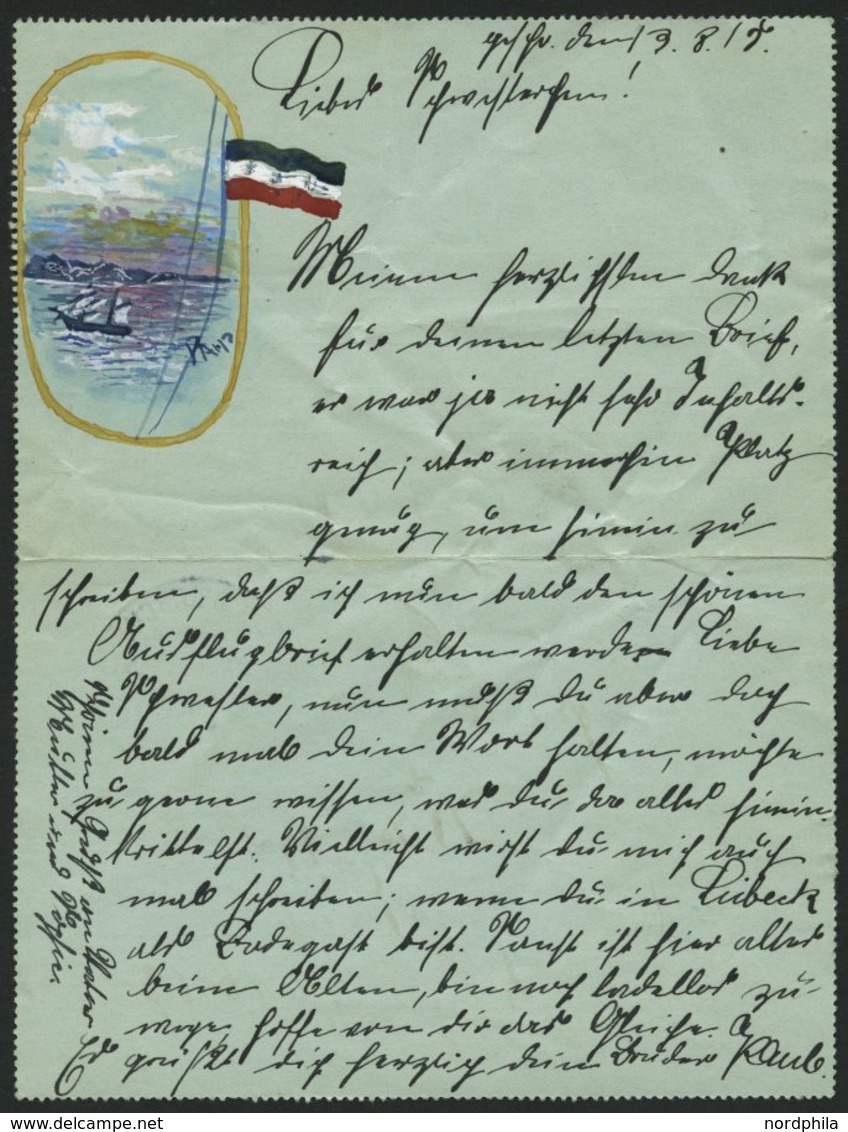 geschr. den 13.8.15.
Liebes Schwesterchen!
Meinen herzlichsten Dank
für deinen letzten Brief,
er war ja nicht sehr Inhalts-
reich; aber immerhin Platz
genug, um hinein zu
schreiben, daß ich nun bald den schönen
Ausflugbrief erhalten werde. Liebe
Schwester, nun mußt du aber doch
bald mal dein Wort halten, möchte
zu gerne wissen, was du da alles hinein
kritzelst. Vielleicht wirst du mich auch
mal schreiben; wenn du in Lübeck
als Badegast bist. Sonst ist hier alles
beim Alten, bin noch tadellos zu-
wege, hoffe von dir das Gleiche.
Es grüßt dich herzlich dein Bruder
Gruß an Vater
Mutter und
www.delcampe.net
nordphila